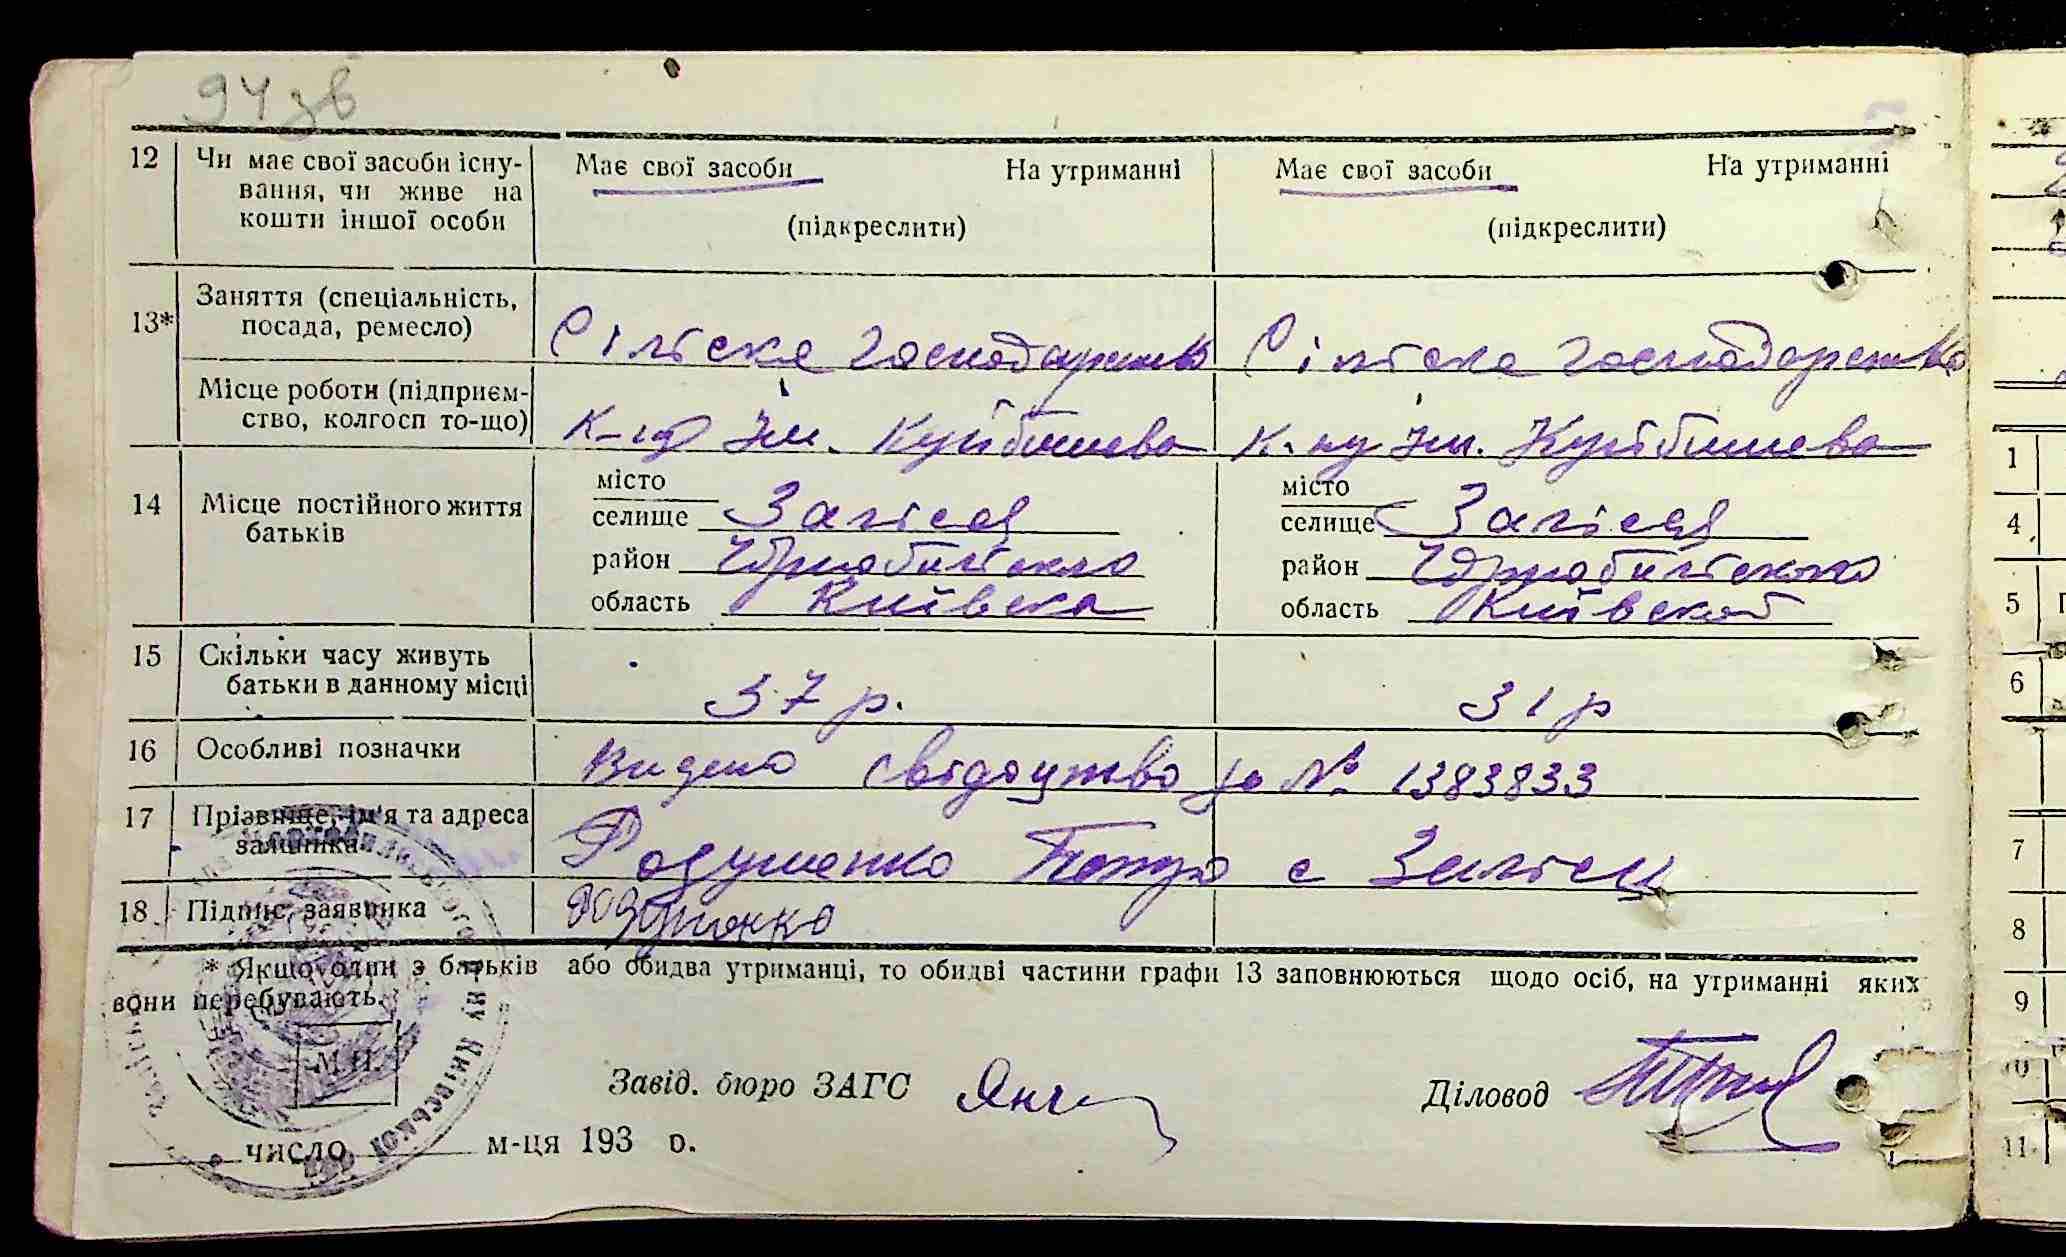 94 зв
12 Чи має свої засоби існу- Має свої засоби На утриманні Має свої засоби На утриманні
вання, чи живе на
кошти іншої особи (підкреслити) (підкреслити)
13* Заняття (спеціальність,
посада, ремесло) Сільске господарство Сільске господарство
Місце роботи (підприєм-
ство, колгосп то-що) К-пу Ім. Куйбишева К-пу Ім. Куйбишева
14 Місце постійного життя
батьків
місто місто
селище Залісся селище Залісся
район Чорнобильского район Чорнобильского
область Київска область Київской
15 Скільки часу живуть
батьки в данному місці 37 р. 31 р
16 Особливі позначки Видено свідоцтво за № 1383833
17 Прізвище, ім'я та адреса
заявника Родуменко Петро с Залісся
18 Підпис заявника Родуменко
* Якщо один з батьків або обидва утриманці, то обидві частини графи 13 заповнюються щодо осіб, на утриманні яких
вони перебувають.
М.П.
Завід. бюро ЗАГС Діловод
число м-ця 193 р.
1
4
5
6
7
8
9
10
11